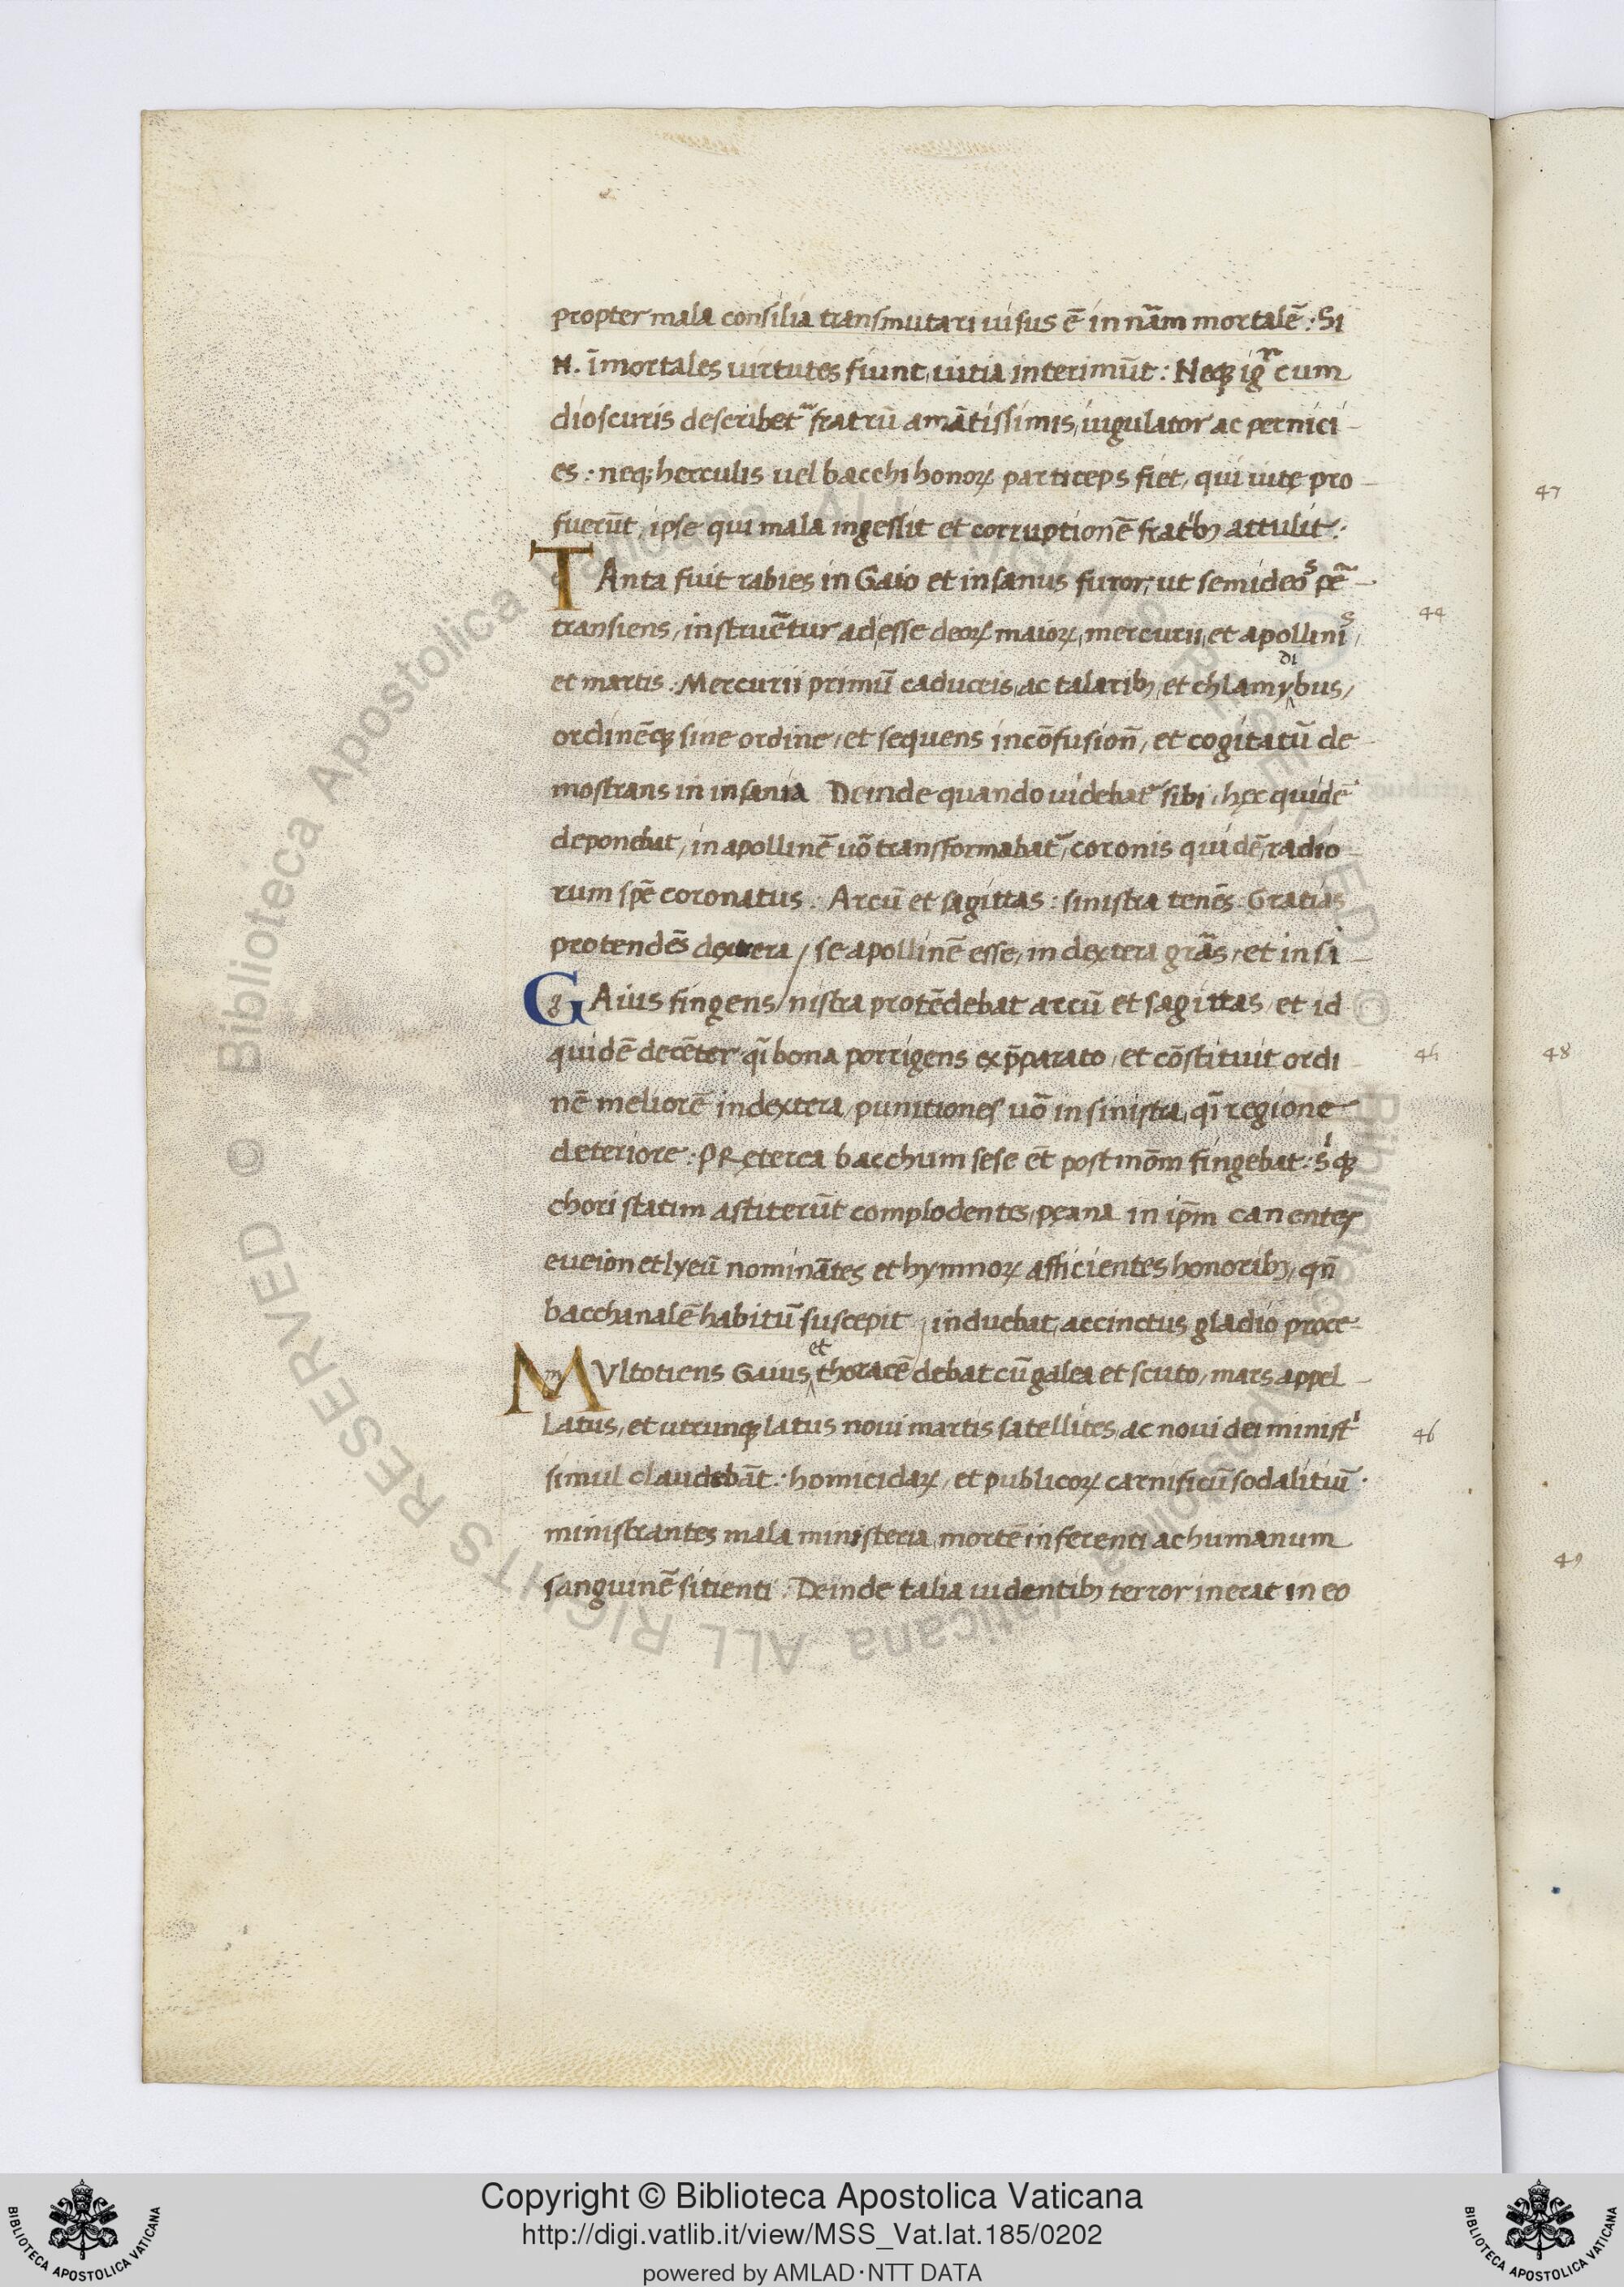 propter mala consilia transmutari uisus ē in nām mortalē : Si
N. īmortales uirtutes fiunt, uitia interimūt : Neqꝫ igr̄ cum
dioscuris describet᷑ fratrū amātissimis, iugulator ac pernici-
es : neqꝫ herculis uel bacchi honoꝝ particeps fiet, qui uite pro-
fuerūt, ipse qui mala ingessit et corruptionē fratribꝫ attulit :
TAnta fuit rabies in Gaio et insanus furor, ut semideos pē-
transiens, instruētur adesse deoꝝ maioꝝ, mercurii, et apollinis,
et martis : Mercurii primū caduceis, ac talaribꝫ, et chlamydibus,
ordinēqꝫ sine ordine, et sequens incōfusionē, et cogitatū de-
mostrans in insania Deinde quando uidebat᷑ sibi, hęc quidē
deponebat, in apollinē uō transformabat᷑, coronis quidē, radio-
rum spē coronatus : Arcū et sagittas : sinistra tenēs. Gratias
protendēs dextera, se apollinē esse, in dextera grās, et in si-
GAius fingens/ nistra protēdebat arcū et sagittas, et id
quidē decēter, qī bona porrigens ex p̄parato, et cōstituit ordi
nē meliorē in dextera, punitiones uō in sinistra, qī regione
deteriore : PRęterea bacchum sese ēt post mōm fingebat : siqꝫ
chori statim astiterūt complodentes, pęana in ip̄m canentes
eueion et lyeū nominātes et hymnoꝝ afficientes honoribꝫ, qn̄
bacchanalē habitū suscepit / induebat, accinctus gladio proce-
MUltotiens Gaius et thoracē debat cū galea et scuto, mars appel-
latus, et utrunqꝫ latus noui martis satellites, ac noui dei ministi
simul claudebāt : homicidaꝝ, et publicoꝝ carnificū sodalitiū.
ministrantes mala ministeria, mortē inferenti ac humanum
sanguinē sitienti : Deinde talia uidentibꝫ terror inerat in eo
44
45
46
47
48
49
© Biblioteca Apostolica Vaticana ALL RIGHTS RESERVED
© Biblioteca Apostolica Vaticana ALL RIGHTS RESERVED
Copyright © Biblioteca Apostolica Vaticana
http://digi.vatlib.it/view/MSS_Vat.lat.185/0202
powered by AMLAD·NTT DATA
BIBLIOTECA APOSTOLICA VATICANA
BIBLIOTECA APOSTOLICA VATICANA